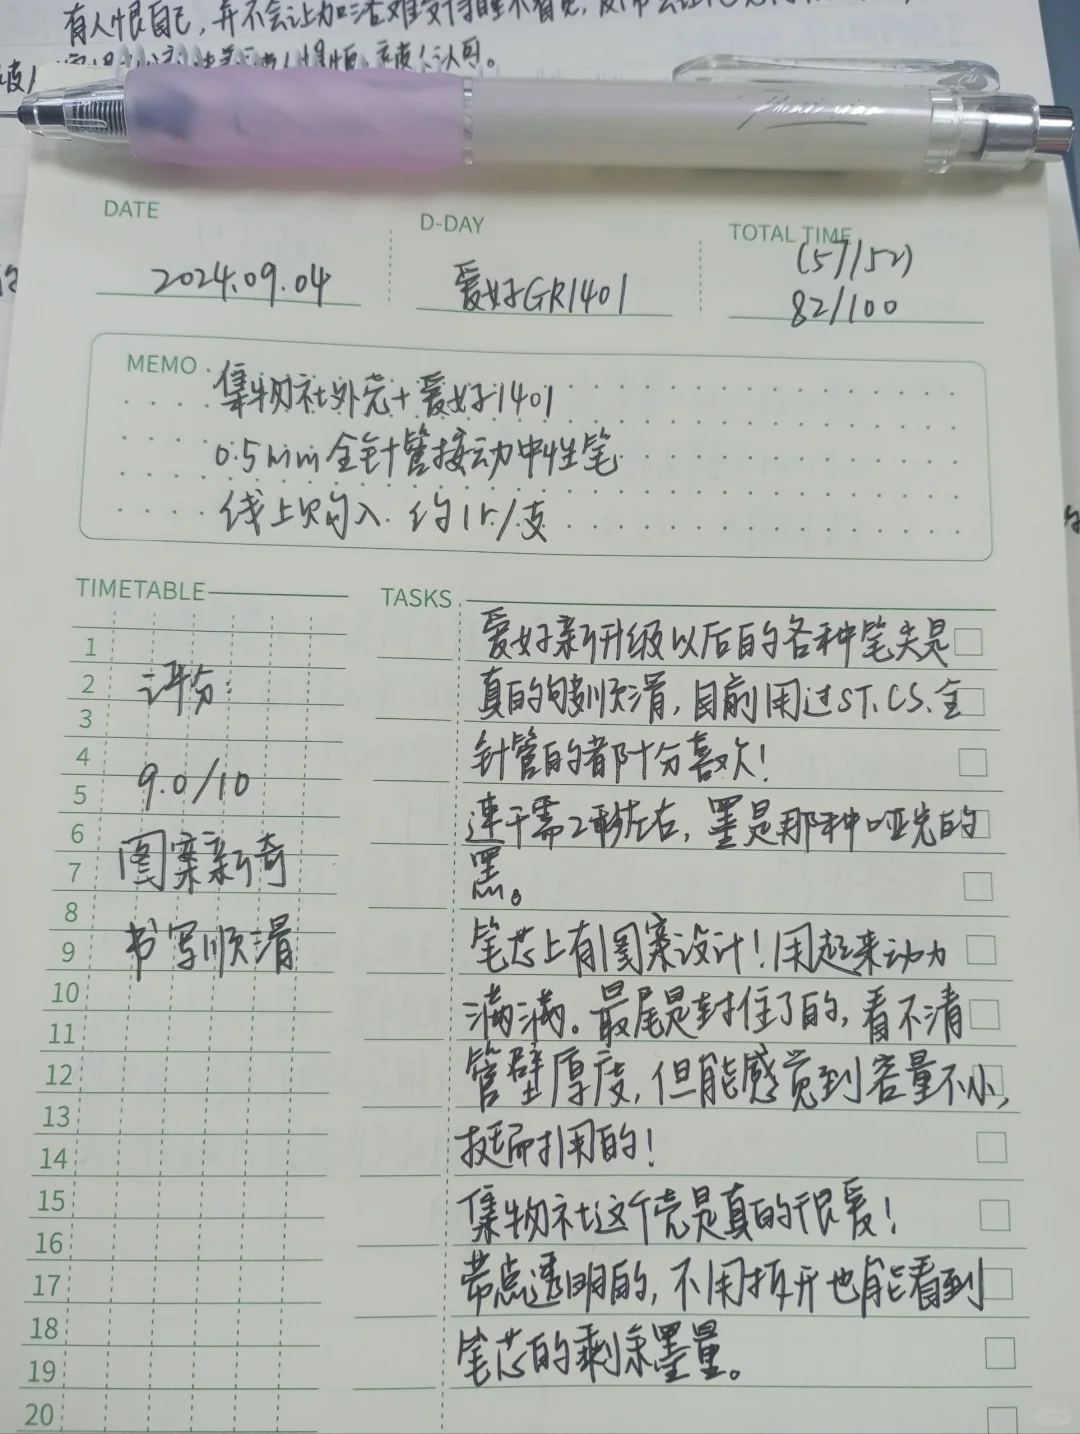 有人恨自己，并不会让加害
DATE
2024.09.04
D-DAY
爱好GR1401
TOTAL TIME
(57/52)
82/100
MEMO
集物社外壳+爱好1401
0.5mm全针管按动中性笔
线上购入 约1r/支
TIMETABLE
1
2
3
4
5
6
7
8
9
10
11
12
13
14
15
16
17
18
19
20
评分：
9.0/10
图案新奇
书写顺滑
TASKS
爱好新升级以后的各种笔头是
真的够顺滑，目前用过ST.CS.全
针管的都十分喜欢！
速干需2秒左右，墨是那种哑光的
黑。
笔芯上有图案设计！用起来动力
满满。最尾是封住了的，看不清
管壁厚度，但能感觉到容量不小，
挺耐用的！
集物社这个壳是真的很爱！
带点透明的，不用拆开也能看到
笔芯的剩余墨量。